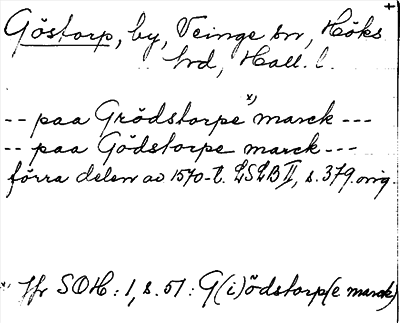 Göstorp, by, Veinge sn, Höks
hrd, Hall. l.
-- paa Grödstorpe x) marck ---
-- paa Gödstorpe marck ---
förra delen av 1570-t. LSLB II, s. 379. orig.
x) Jfr SOH: 1, s. 51: G(i)ödstorp(e marck)